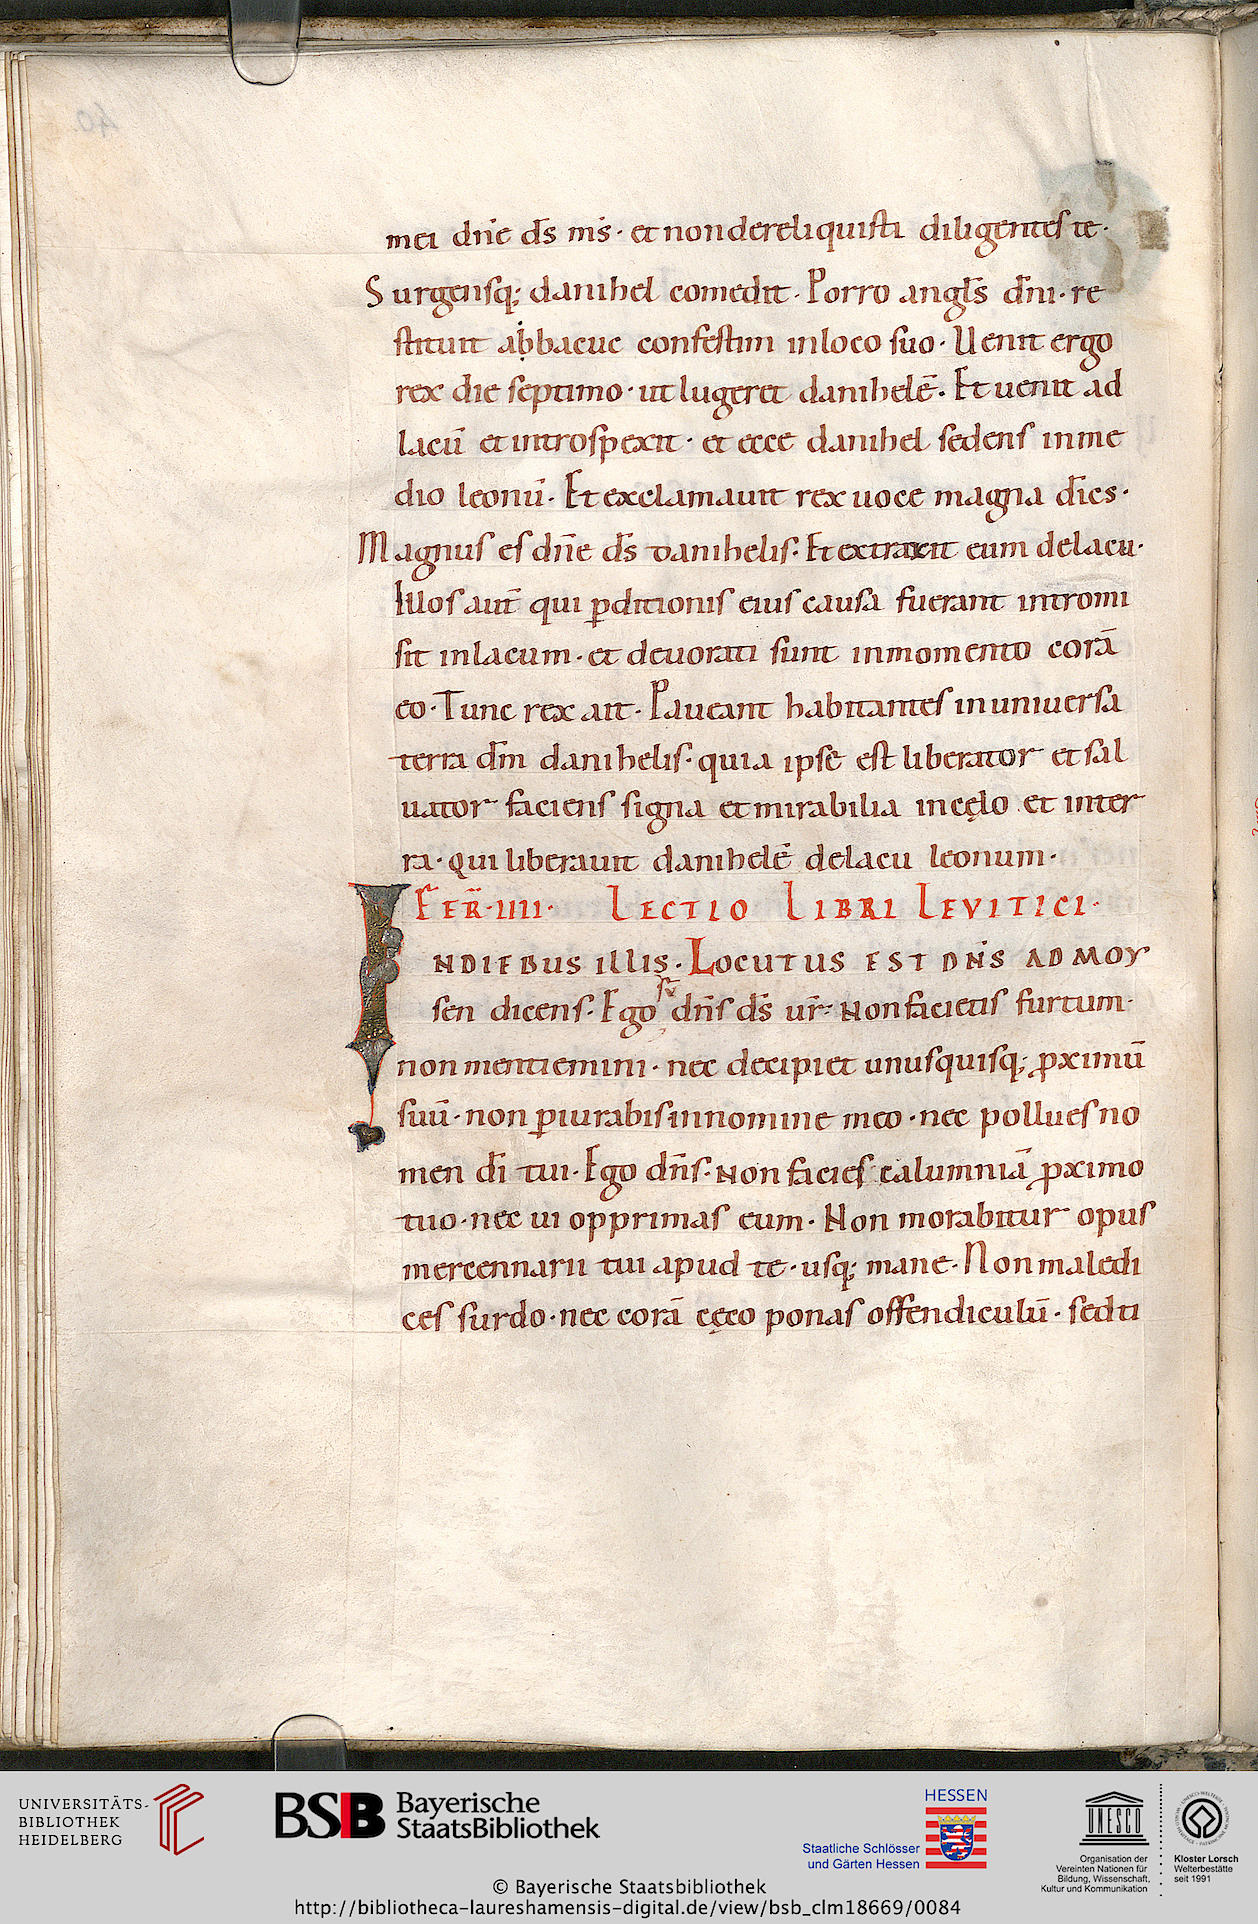 40
mei dn̄e d̄s m̄s · et nondereliquisti diligentes te ·
Surgensq; danihel comedit · Porro angl̄s d̄ni · re
stituit abbacuc confestim inloco suo · Uenit ergo
rex die septimo · ut lugeret danihelē · Et uenit ad
lacū et introspexit · et ecce danihel sedens inme
dio leonū · Et exclamauit rex uoce magna d̄ics ·
Magnus es dn̄e d̄s danihelis · Et extraxit eum delacu ·
Illos aut̄ qui ꝑditionis eius causa fuerant intromi
sit inlacum · et deuorati sunt inmomento corā
eo · Tunc rex ait · Paueant habitantes inuniuersa
terra d̄m danihelis · quia ipse est liberator et sal
uator faciens signa et mirabilia incęlo et inter
ra · qui liberauit danihelē delacu leonum ·
FER̄ · IIII · LECTIO LIBRI LEVITICI ·
INDIEBUS ILLIS · LOCUTUS EST DN̄S AD MOY
sen dicens · Ego sū dn̄s d̄s ur̄ · Nonfacietis furtum ·
non mentiemini · nec decipiet unusquisq; ꝓximū
suū · non ꝑiurabis innomine meo · nec pollues no
men d̄i tui · Ego dn̄s · Non facies calumniā ꝓximo
tuo · nec ui opprimas eum · Non morabitur opus
mercennarii tui apud te · usq; mane · Non maledi
ces surdo · nec corā cęco ponas offendiculū · sed ti
UNIVERSITÄTS-
BIBLIOTHEK
HEIDELBERG
BSB Bayerische
StaatsBibliothek
HESSEN
Staatliche Schlösser
und Gärten Hessen
UNESCO
Organisation der
Vereinten Nationen für
Bildung, Wissenschaft,
Kultur und Kommunikation
Kloster Lorsch
Welterbestätte
seit 1991
© Bayerische Staatsbibliothek
http://bibliotheca-laureshamensis-digital.de/view/bsb_clm18669/0084